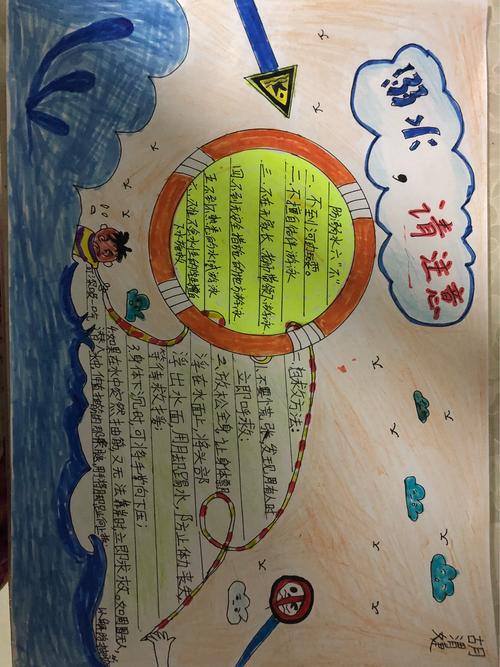 溺水,请注意
防溺水六“不”
一.不到河边玩耍。
二.不擅自结伴游泳
三.不在无家长、老师带领下游泳
四.不到无安全措施的地方游泳
五.不到不熟悉的水域游泳
自救方法:
1.不要慌张,发现周围有人时
立即呼救;
2.放松全身,让身体飘
浮在水面上,将头部
浮出水面,用脚踢水,防止体力丧失,
等待救援;
3.身体下沉时,可将手掌向下压;
4.如果在水中突然抽筋,又无法靠岸时,立即求救。如周围无人,
可深吸一口气,
潜入水中,伸直抽筋的那条腿,用手将脚趾向上扳,
以解除抽筋